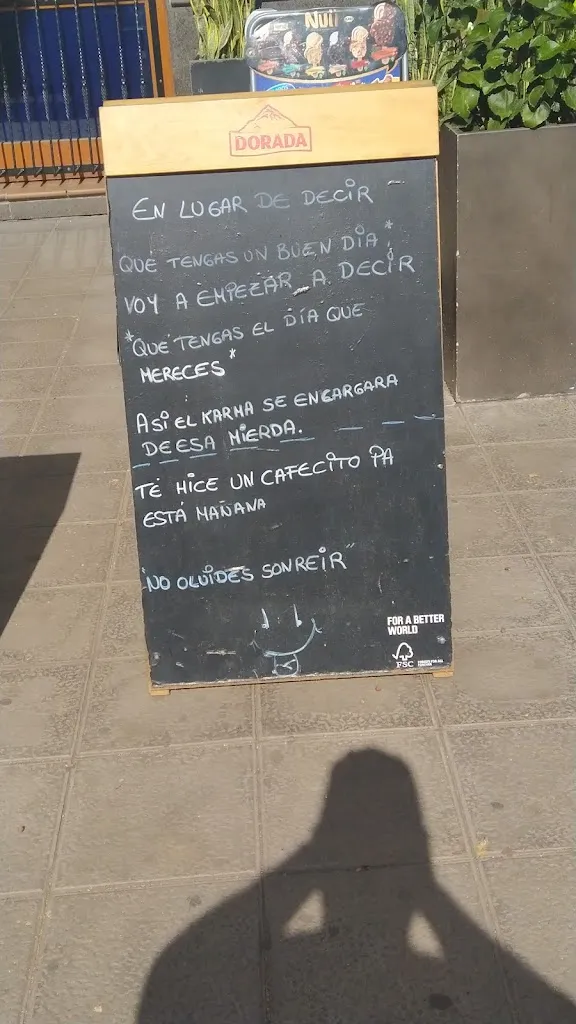 Nuii
DORADA
EN LUGAR DE DECIR
"QUE TENGAS UN BUEN DÍA"
VOY A EMPEZAR A DECIR
"QUE TENGAS EL DÍA QUE
MERECES"
ASÍ EL KARMA SE ENCARGARA
DE ESA MIERDA.
TE HICE UN CAFECITO PA
ESTÁ MAÑANA
"NO OLVIDES SONREIR"
FOR A BETTER
WORLD
FSC